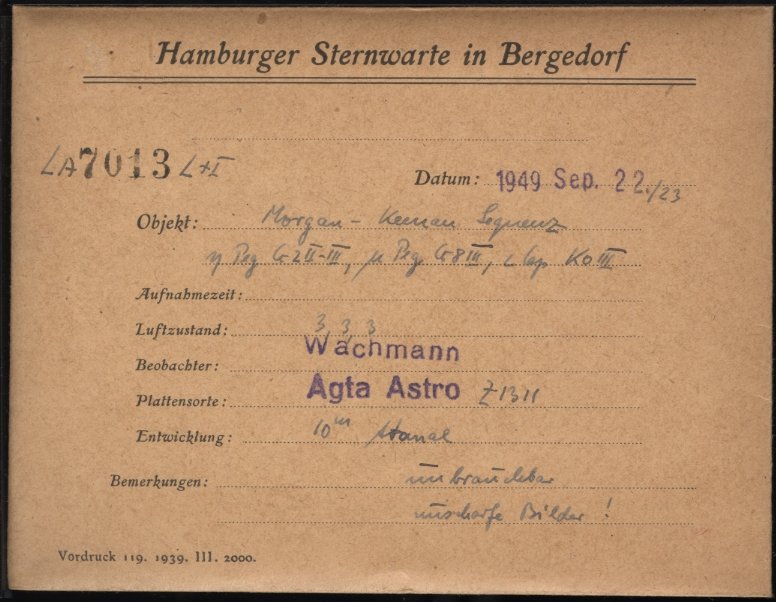 Hamburger Sternwarte in Bergedorf
LA 7013 L+I
Datum: 1949 Sep. 22./23
Objekt: Morgan - Keenan Sequenz
η Peg G2 II-III, μ Peg G8 III, ι Cap K0 III
Aufnahmezeit:
Luftzustand: 3 3 3
Beobachter: Wachmann
Plattensorte: Agfa Astro Z1311
Entwicklung: 10m
Bemerkungen: unbrauchbar
unscharfe Bilder!
Vordruck 119. 1939. III. 2000.